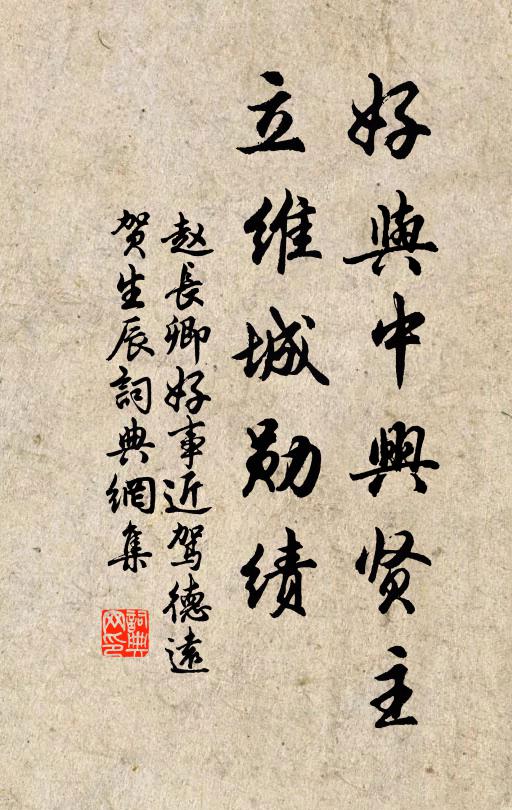 好與中興贤主
立维城勋绩
赵長卿好事近驾德遠
贺生辰詞典網集
詞典網印